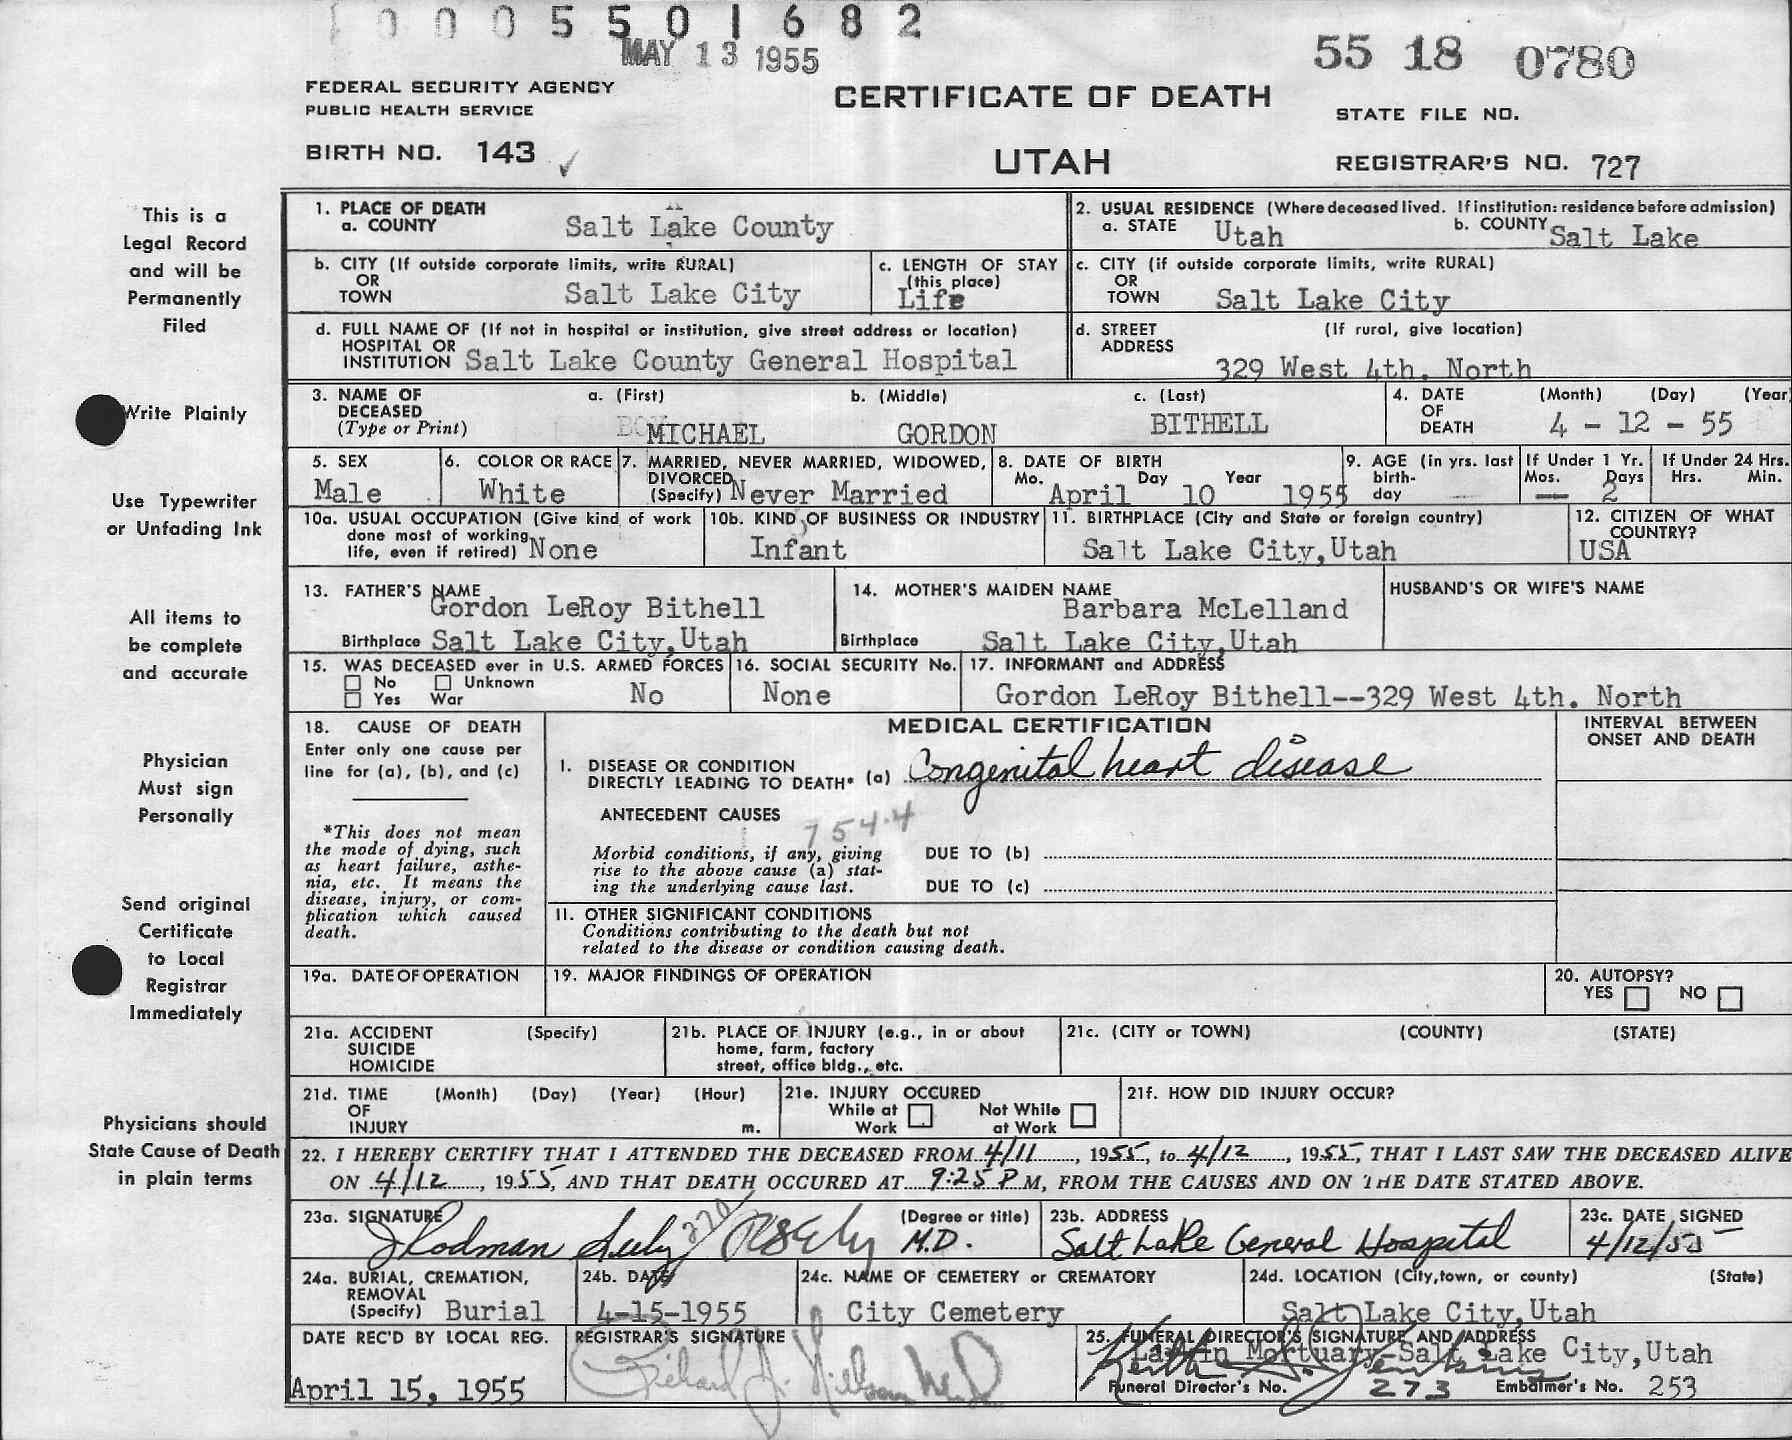 0 0 0 5 5 0 1 6 8 2
MAY 13 1955
55 18 0780
FEDERAL SECURITY AGENCY
PUBLIC HEALTH SERVICE
CERTIFICATE OF DEATH
STATE FILE NO.
BIRTH NO. 143 ✓
UTAH
REGISTRAR'S NO. 727
This is a
Legal Record
and will be
Permanently
Filed
Write Plainly
Use Typewriter
or Unfading Ink
All items to
be complete
and accurate
Physician
Must sign
Personally
Send original
Certificate
to Local
Registrar
Immediately
Physicians should
State Cause of Death
in plain terms
1. PLACE OF DEATH
a. COUNTY Salt Lake County
2. USUAL RESIDENCE (Where deceased lived. If institution: residence before admission)
a. STATE Utah b. COUNTY Salt Lake
b. CITY (If outside corporate limits, write RURAL)
OR
TOWN Salt Lake City
c. LENGTH OF STAY
(this place)
Life
c. CITY (if outside corporate limits, write RURAL)
OR
TOWN Salt Lake City
d. FULL NAME OF (If not in hospital or institution, give street address or location)
HOSPITAL OR
INSTITUTION Salt Lake County General Hospital
d. STREET (If rural, give location)
ADDRESS
329 West 4th. North
3. NAME OF
DECEASED
(Type or Print)
a. (First) b. (Middle) c. (Last)
MICHAEL GORDON BITHELL
4. DATE
OF
DEATH
(Month) (Day) (Year
4 - 12 - 55
5. SEX
Male
6. COLOR OR RACE
White
7. MARRIED, NEVER MARRIED, WIDOWED,
DIVORCED
(Specify) Never Married
8. DATE OF BIRTH
Mo. Day Year
April 10 1955
9. AGE (in yrs. last
birth-
day —
If Under 1 Yr.
Mos. Days
— 2
If Under 24 Hrs.
Hrs. Min.
10a. USUAL OCCUPATION (Give kind of work
done most of working
life, even if retired) None
10b. KIND OF BUSINESS OR INDUSTRY
Infant
11. BIRTHPLACE (City and State or foreign country)
Salt Lake City,Utah
12. CITIZEN OF WHAT
COUNTRY?
USA
13. FATHER'S NAME
Gordon LeRoy Bithell
Birthplace Salt Lake City,Utah
14. MOTHER'S MAIDEN NAME
Barbara McLelland
Birthplace Salt Lake City,Utah
HUSBAND'S OR WIFE'S NAME
15. WAS DECEASED ever in U.S. ARMED FORCES
No Unknown
Yes War
No
16. SOCIAL SECURITY No.
None
17. INFORMANT and ADDRESS
Gordon LeRoy Bithell--329 West 4th. North
18. CAUSE OF DEATH
Enter only one cause per
line for (a), (b), and (c)
*This does not mean
the mode of dying, such
as heart failure, asthe-
nia, etc. It means the
disease, injury, or com-
plication which caused
death.
MEDICAL CERTIFICATION
INTERVAL BETWEEN
ONSET AND DEATH
I. DISEASE OR CONDITION
DIRECTLY LEADING TO DEATH* (a) Congenital heart disease
ANTECEDENT CAUSES
754.4
Morbid conditions, if any, giving
rise to the above cause (a) stat-
ing the underlying cause last.
DUE TO (b)
DUE TO (c)
II. OTHER SIGNIFICANT CONDITIONS
Conditions contributing to the death but not
related to the disease or condition causing death.
19a. DATE OF OPERATION
19. MAJOR FINDINGS OF OPERATION
20. AUTOPSY?
YES NO
21a. ACCIDENT (Specify)
SUICIDE
HOMICIDE
21b. PLACE OF INJURY (e.g., in or about
home, farm, factory
street, office bldg., etc.
21c. (CITY or TOWN) (COUNTY) (STATE)
21d. TIME (Month) (Day) (Year) (Hour)
OF
INJURY m.
21e. INJURY OCCURED
While at Work
Not While at Work
21f. HOW DID INJURY OCCUR?
22. I HEREBY CERTIFY THAT I ATTENDED THE DECEASED FROM 4/11, 1955, to 4/12, 1955, THAT I LAST SAW THE DECEASED ALIVE
ON 4/12, 1955, AND THAT DEATH OCCURED AT 9:25 P M, FROM THE CAUSES AND ON THE DATE STATED ABOVE.
23a. SIGNATURE (Degree or title)
Rodman M.D.
23b. ADDRESS
Salt Lake General Hospital
23c. DATE SIGNED
4/12/55
24a. BURIAL, CREMATION,
REMOVAL
(Specify) Burial
24b. DATE
4-15-1955
24c. NAME OF CEMETERY or CREMATORY
City Cemetery
24d. LOCATION (City,town, or county) (State)
Salt Lake City,Utah
DATE REC'D BY LOCAL REG.
April 15, 1955
REGISTRAR'S SIGNATURE
Richard
25. FUNERAL DIRECTOR'S SIGNATURE AND ADDRESS
Mortuary-Salt Lake City,Utah
Keith
Funeral Director's No. 273 Embalmer's No. 253